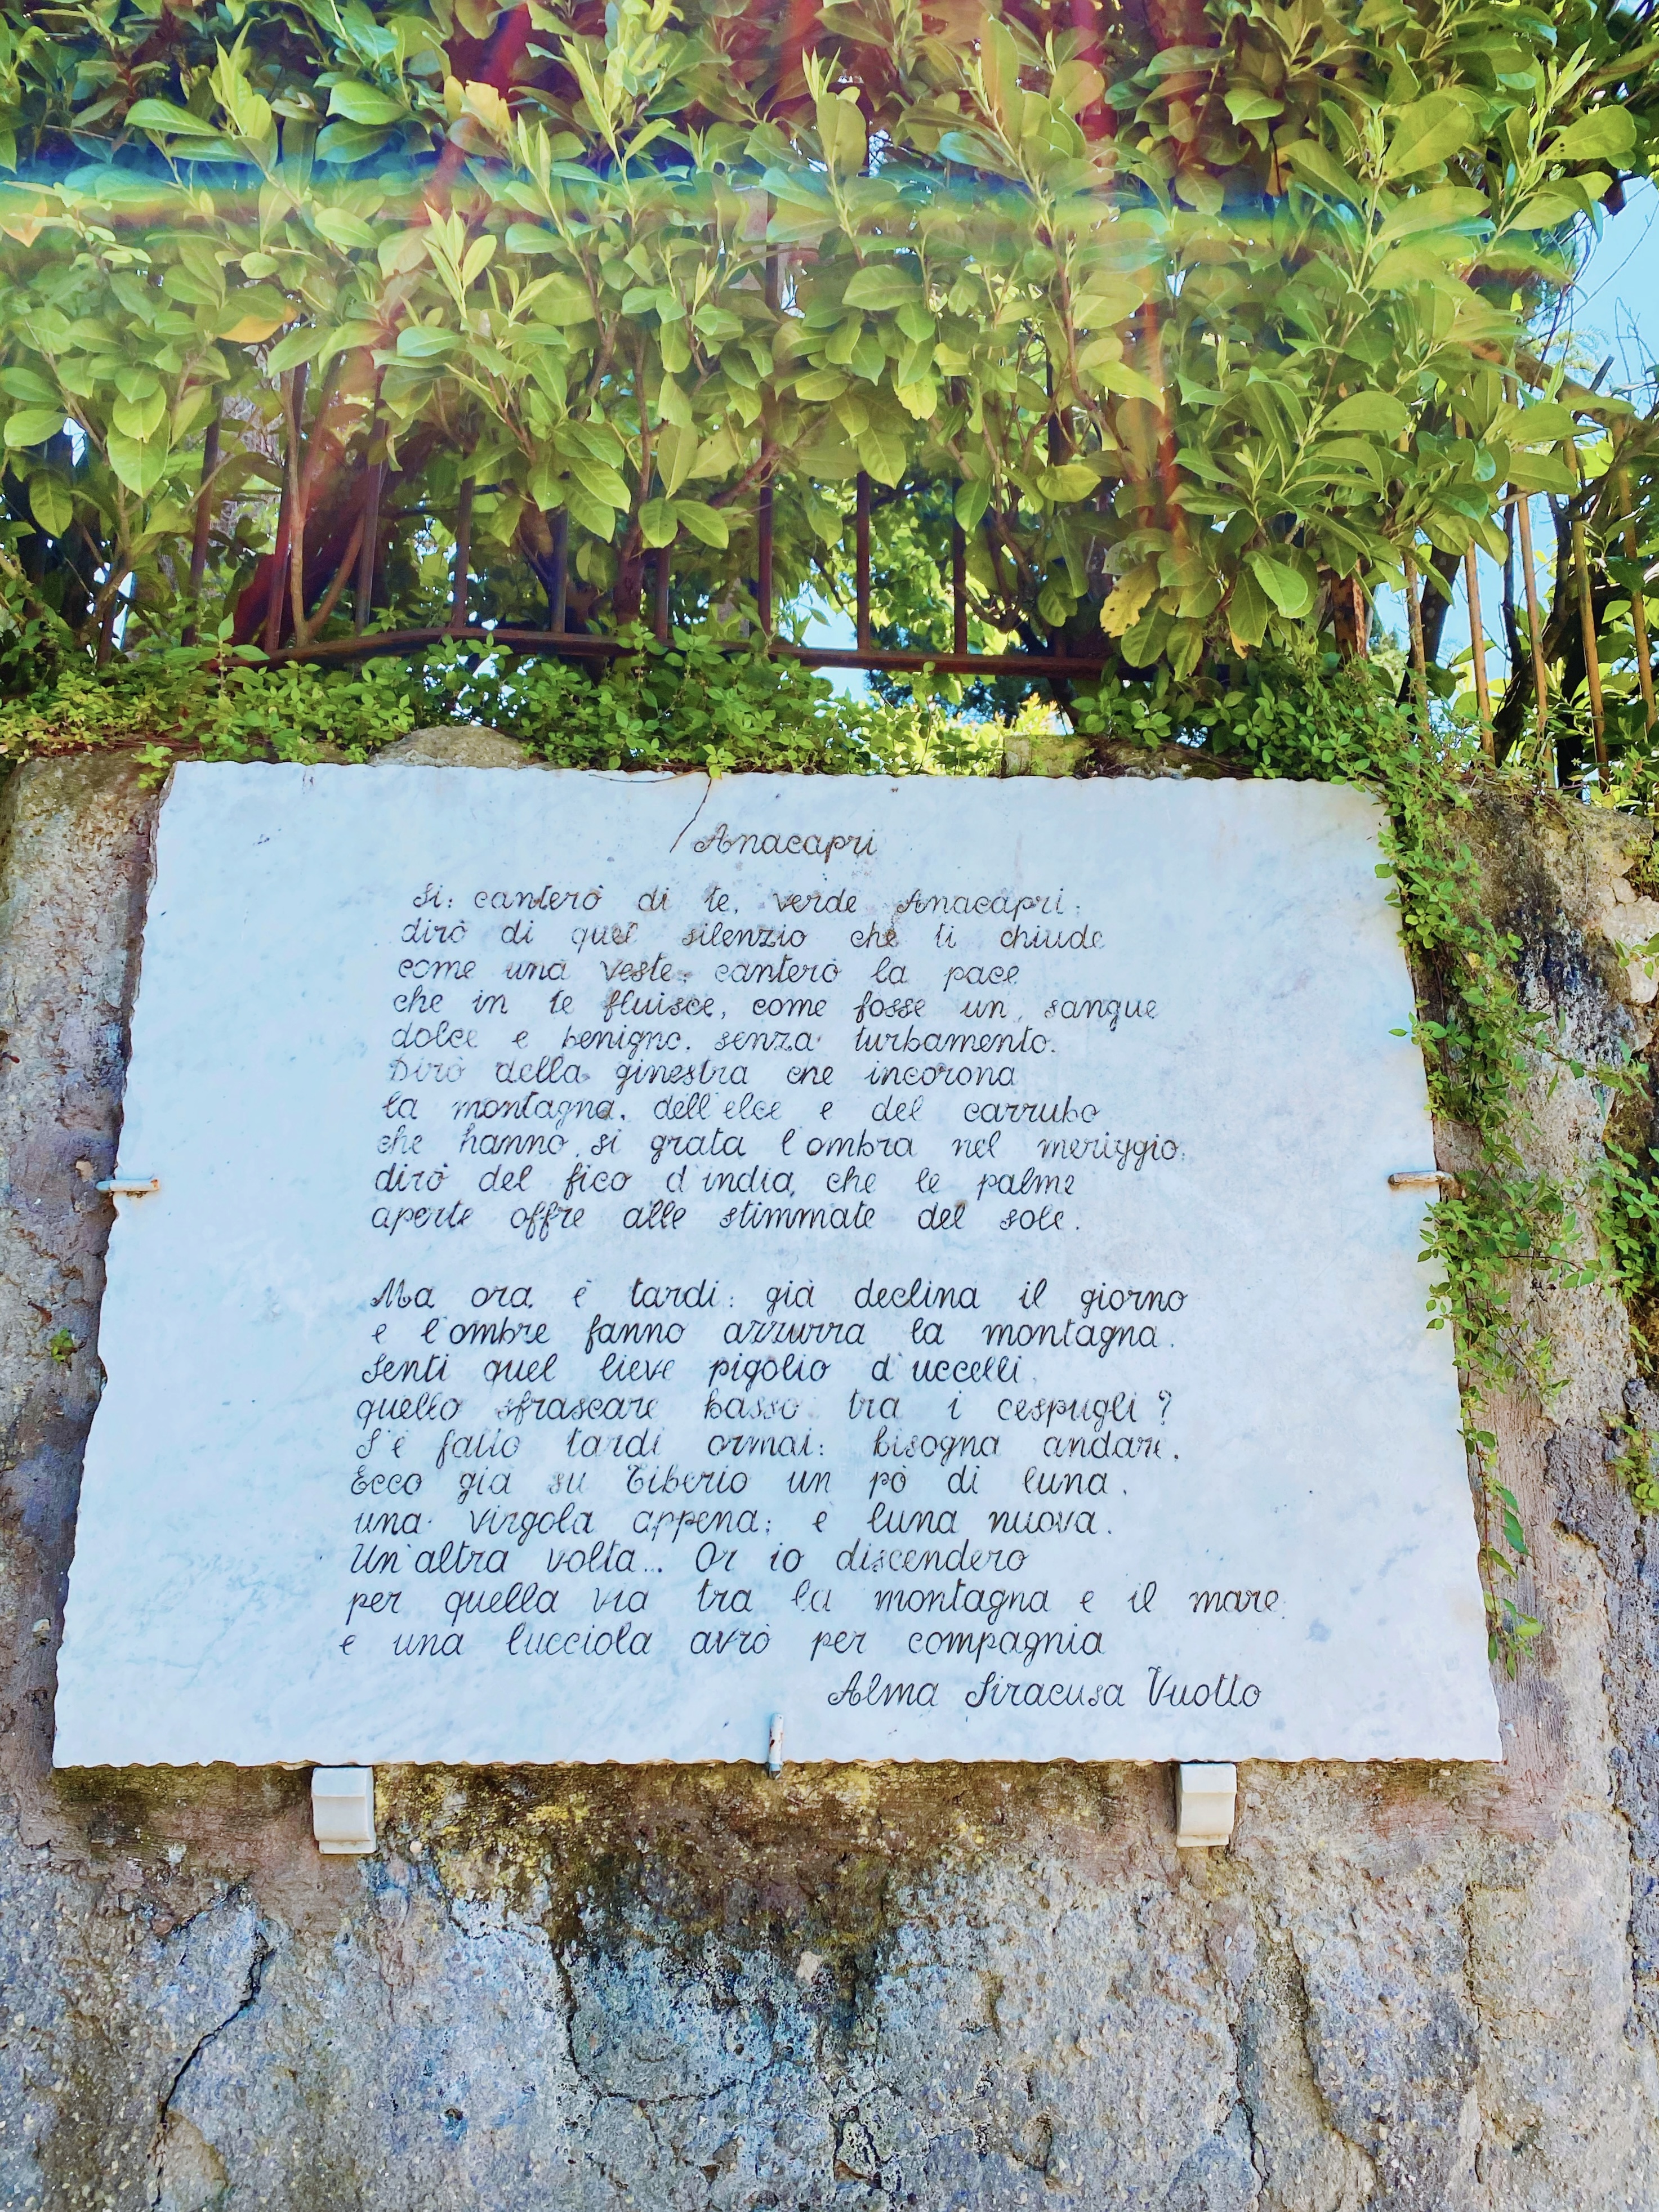 Anacapri
Si: canterò di te, verde Anacapri:
dirò di quel silenzio che ti chiude
come una veste: canterò la pace
che in te fluisce, come fosse un sangue
dolce e benigno, senza turbamento.
Dirò della ginestra che incorona
la montagna, dell'elce e del carrubo
che hanno si grata l'ombra nel meriggio:
dirò del fico d'india, che le palme
aperte offre alle stimmate del sole.
Ma ora è tardi: già declina il giorno
e l'ombre fanno azzurra la montagna.
Senti quel lieve pigolio d'uccelli,
quello sfrascare basso tra i cespugli?
S'è fatto tardi ormai: bisogna andare.
Ecco già su Tiberio un pò di luna,
una virgola appena; è luna nuova.
Un'altra volta... Or io discenderò
per quella via tra la montagna e il mare
e una lucciola avrò per compagnia
Alma Siracusa Vuotto